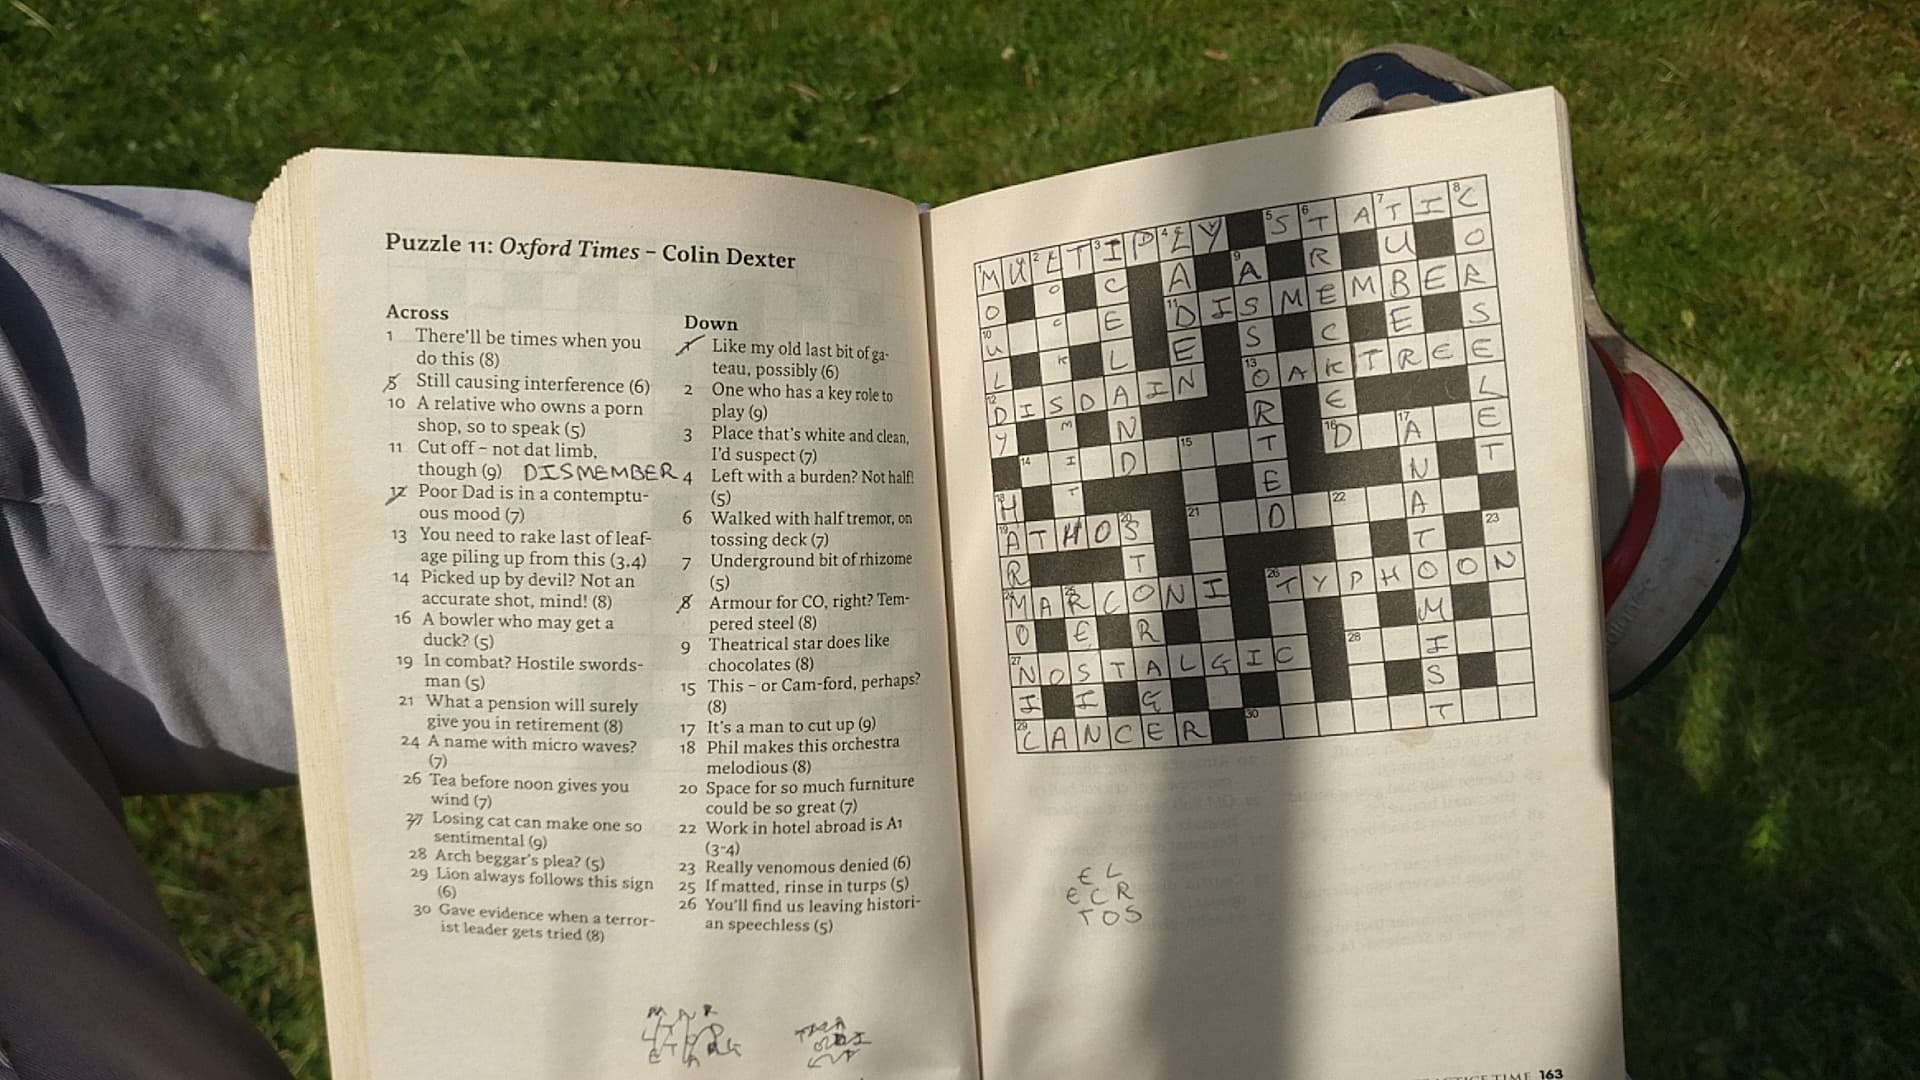 Puzzle 11: Oxford Times – Colin Dexter
Across
1 There'll be times when you
do this (8)
5 Still causing interference (6)
10 A relative who owns a porn
shop, so to speak (5)
11 Cut off – not dat limb,
though (9) DISMEMBER
12 Poor Dad is in a contemptu-
ous mood (7)
13 You need to rake last of leaf-
age piling up from this (3,4)
14 Picked up by devil? Not an
accurate shot, mind! (8)
16 A bowler who may get a
duck? (5)
19 In combat? Hostile swords-
man (5)
21 What a pension will surely
give you in retirement (8)
24 A name with micro waves?
(7)
26 Tea before noon gives you
wind (7)
27 Losing cat can make one so
sentimental (9)
28 Arch beggar's plea? (5)
29 Lion always follows this sign
(6)
30 Gave evidence when a terror-
ist leader gets tried (8)
Down
1 Like my old last bit of ga-
teau, possibly (6)
2 One who has a key role to
play (9)
3 Place that's white and clean,
I'd suspect (7)
4 Left with a burden? Not half!
(5)
6 Walked with half tremor, on
tossing deck (7)
7 Underground bit of rhizome
(5)
8 Armour for CO, right? Tem-
pered steel (8)
9 Theatrical star does like
chocolates (8)
15 This – or Cam-ford, perhaps?
(8)
17 It's a man to cut up (9)
18 Phil makes this orchestra
melodious (8)
20 Space for so much furniture
could be so great (7)
22 Work in hotel abroad is A1
(3-4)
23 Really venomous denied (6)
25 If matted, rinse in turps (5)
26 You'll find us leaving histori-
an speechless (5)
STATIC
DISMEMBER
OAKTREE
DISDAIN
ATHOS
MARCONI
TYPHOON
NOSTALGIC
CANCER
EL
ECR
TOS
163